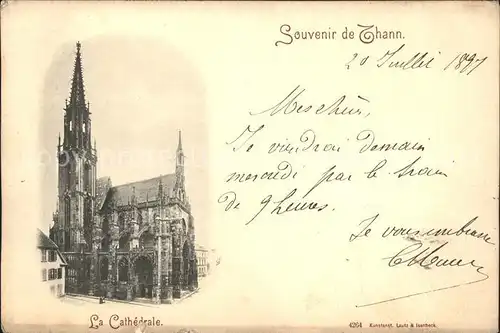 Souvenir de Thann.
20 Juillet 1897
Mes chér,
Je viendrai demain
mercredi par le train
de 9 heures.
Je vous embrasse
La Cathédrale.
4264 Kunstanst. Lautz & Isenbeck.